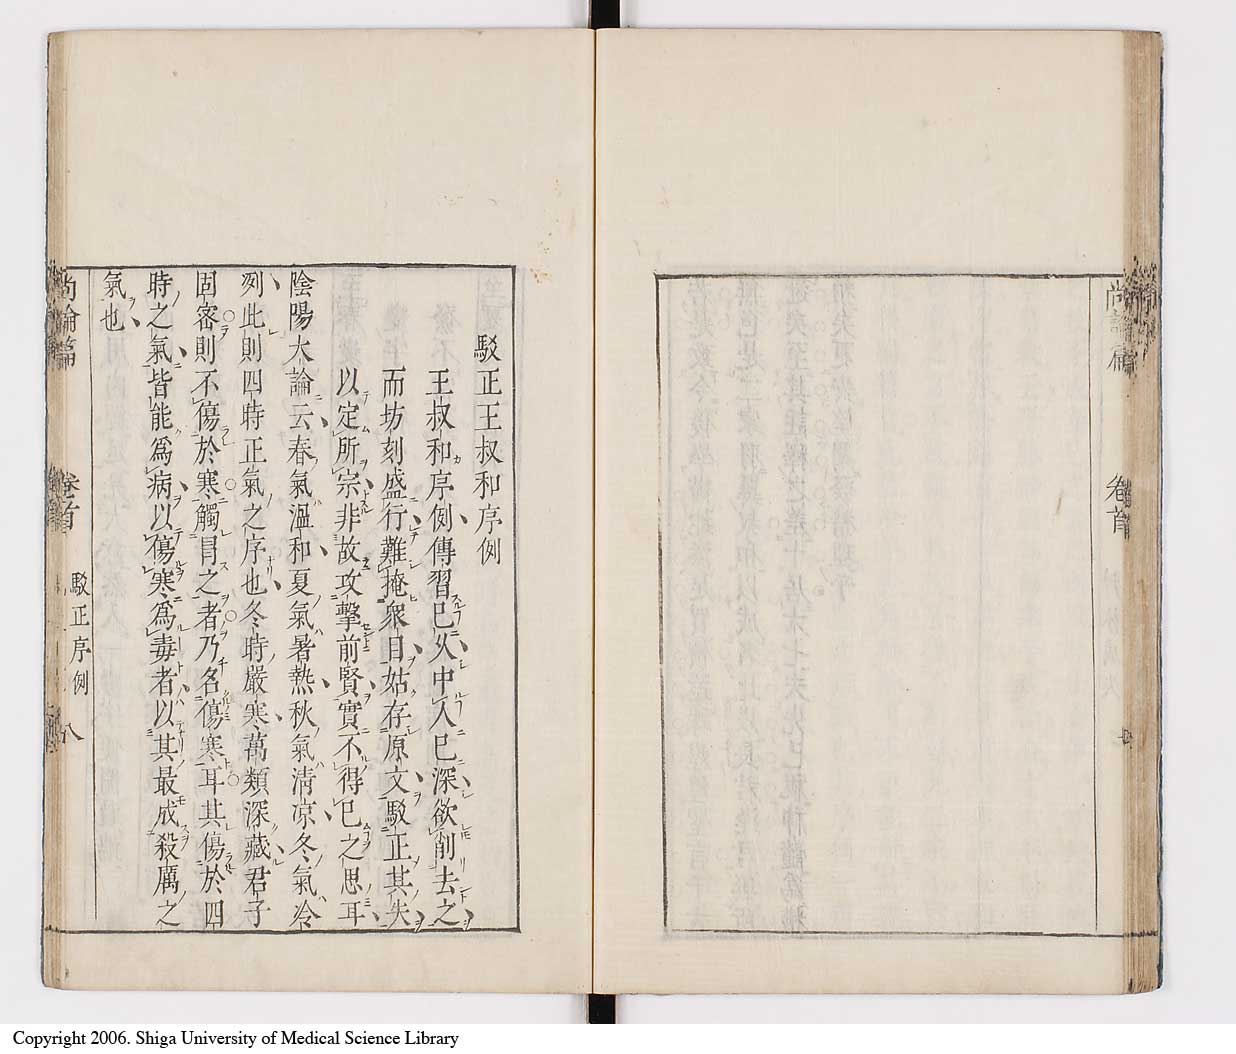 尚論篇
卷首
駁正王叔和序例
王叔和序例傳習已久中人已深欲削去之
而坊刻盛行難掩衆目姑存原文駁正其失
以定所宗非故攻擊前賢實不得已之思耳
陰陽大論云春氣溫和夏氣暑熱秋氣清凉冬氣冷
冽此則四時正氣之序也冬時嚴寒萬類深藏君子
固密則不傷於寒觸冒之者乃名傷寒耳其傷於四
時之氣皆能爲病以傷寒爲毒者以其最成殺厲之
氣也
尚論篇
卷首
駁正序例
八
Copyright 2006. Shiga University of Medical Science Library